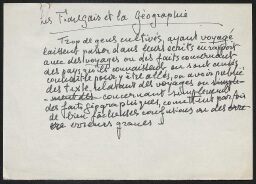 Les Français et la Géographie
Trop de gens cultivés, ayant voyagé
laissent passer dans leurs écrits en rapport
avec des voyages ou des faits concernant
des pays qu'ils connaissent ou sont censés
connaître pour y être allés, ou avoir publié
des textes relatant des voyages ou simple-
ment concernant simplement
des faits géographiques, commettent par fois
de bien fâcheuses confusions ou des erre
erreurs graves